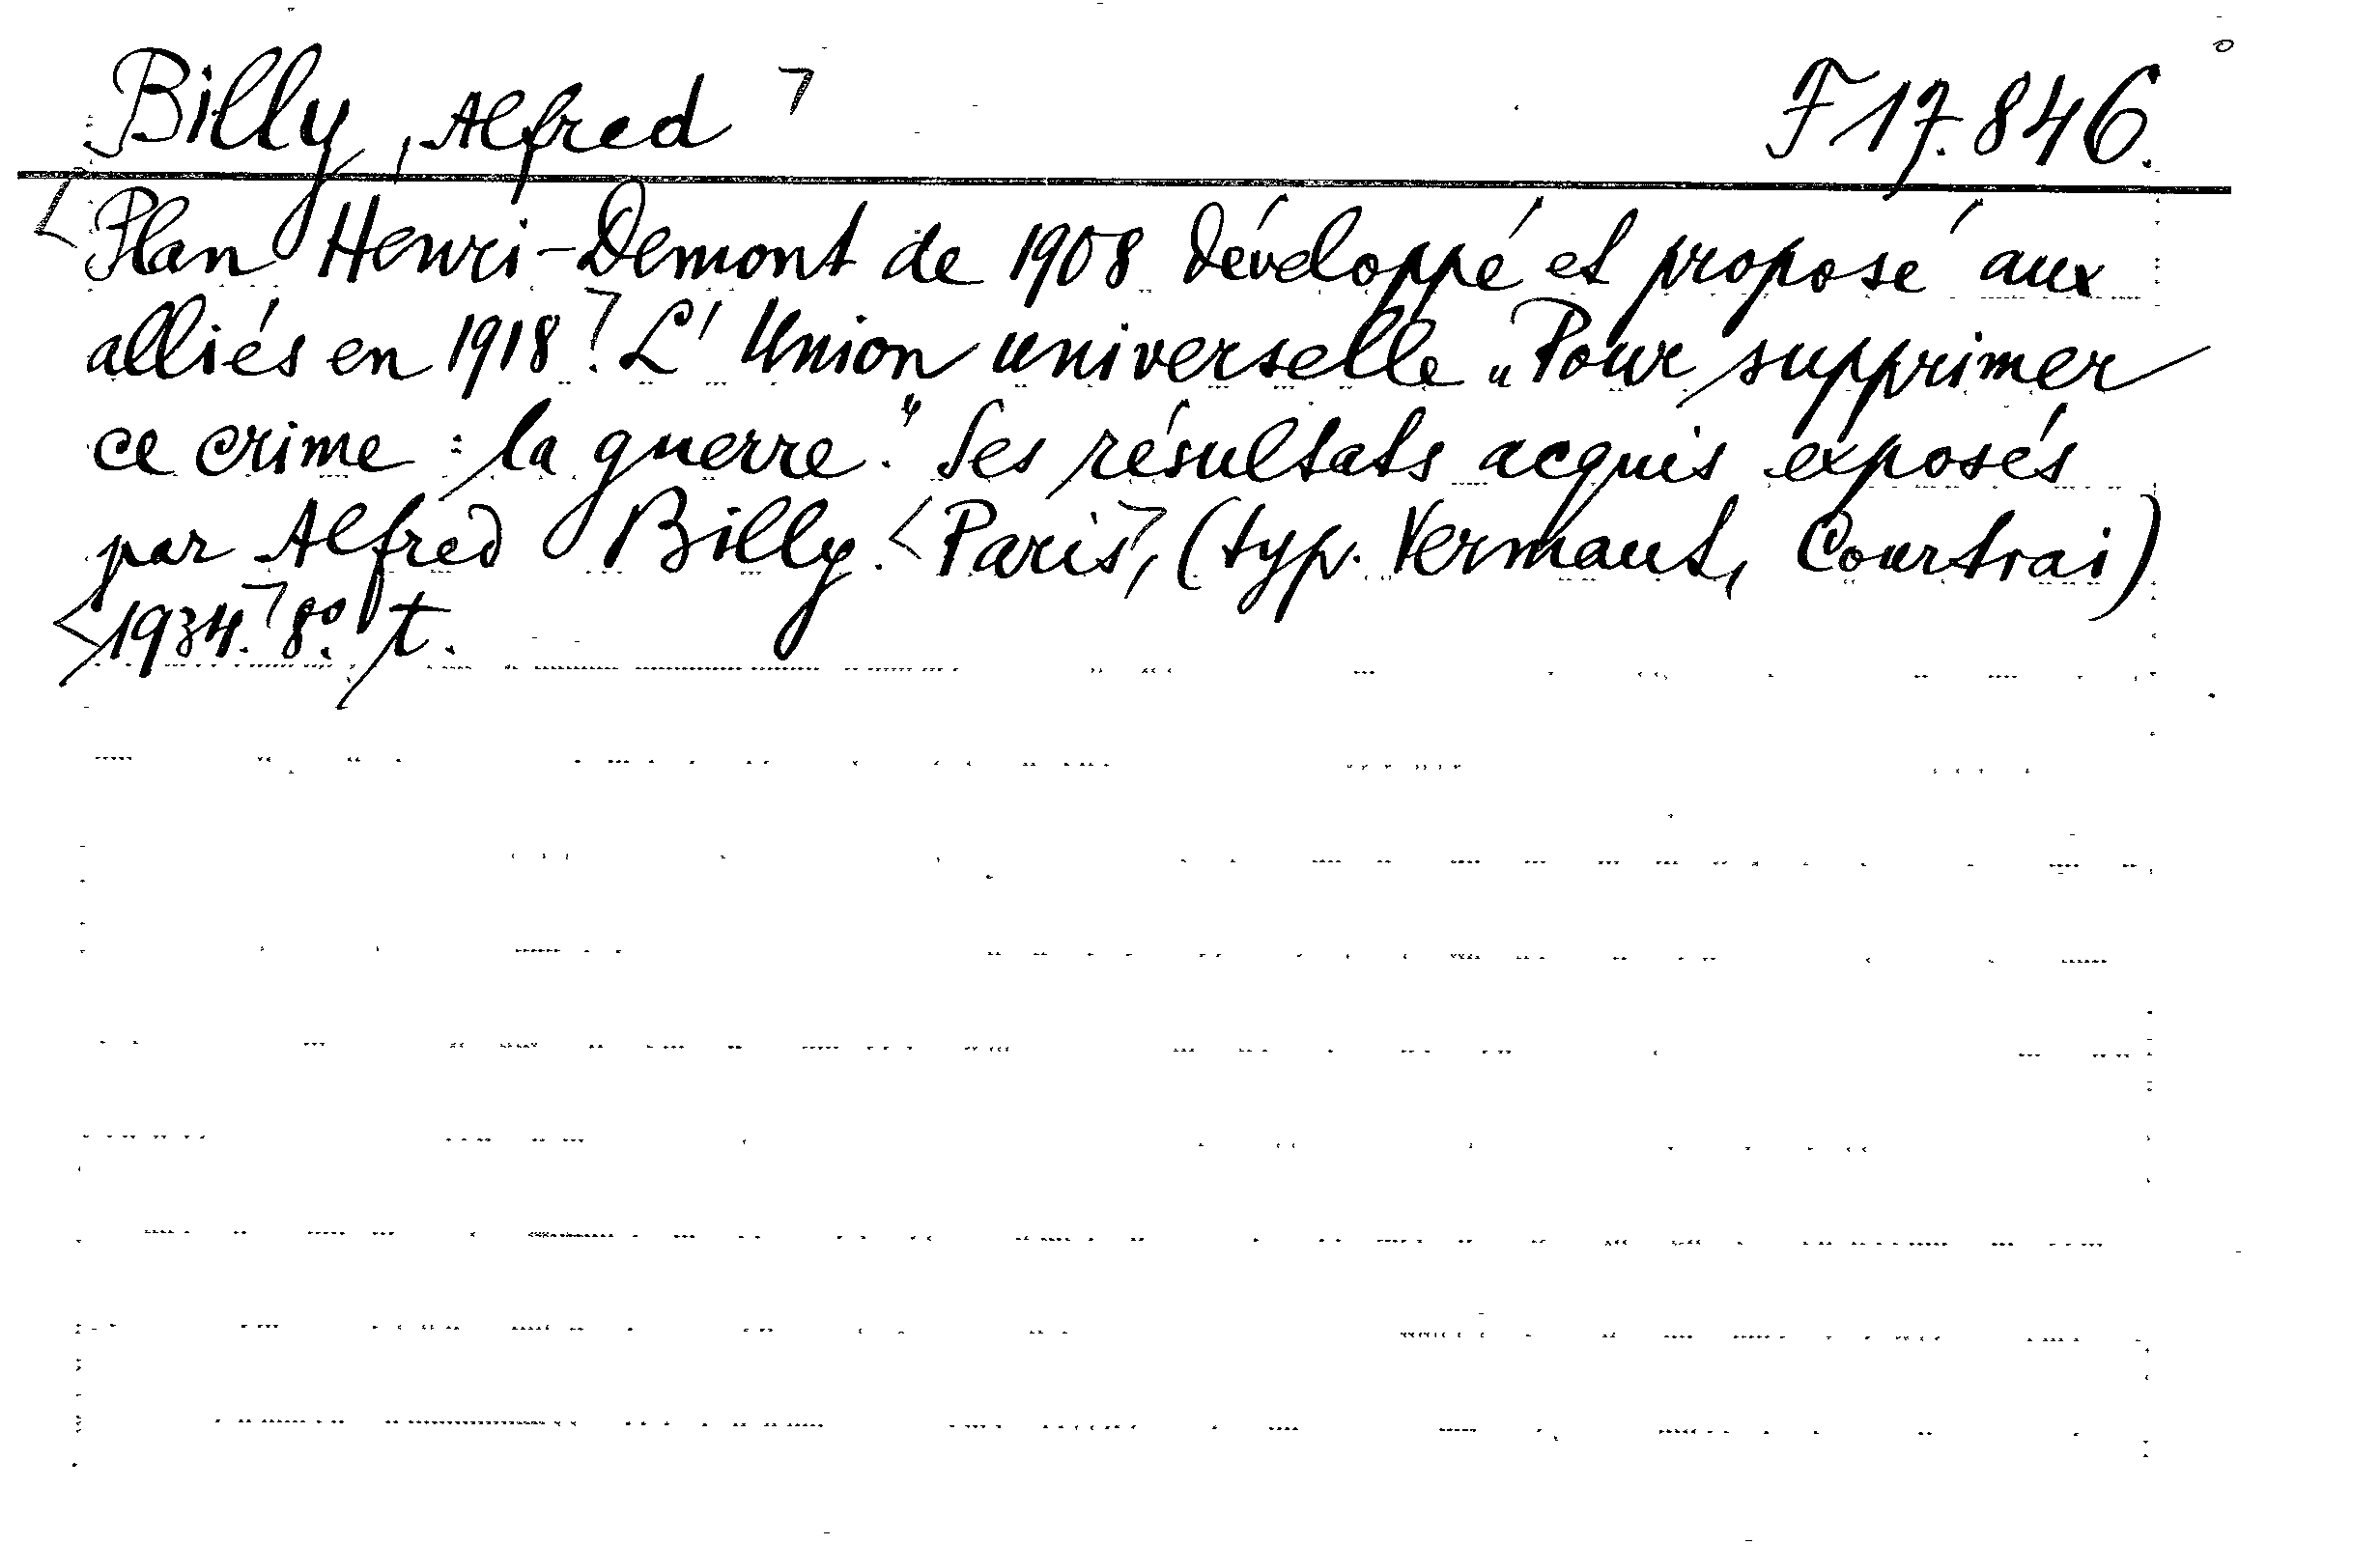 Billy, Alfred F 17.846.
Plan Henri-Demont de 1908 développé et proposé aux
alliés en 1918. L'Union universelle „Pour supprimer
ce crime : la guerre." Ses résultats acquis exposés
par Alfred Billy. Paris, (typ. Vermaut, Courtrai)
1934. 8º. t.